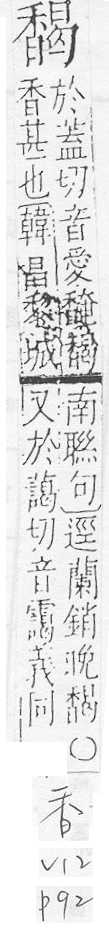 馤
於蓋切音愛晻馤
香甚也韓昌黎城
南聯句逕蘭銷晚馤○
又於謁切音靄義同
香
V12
p92